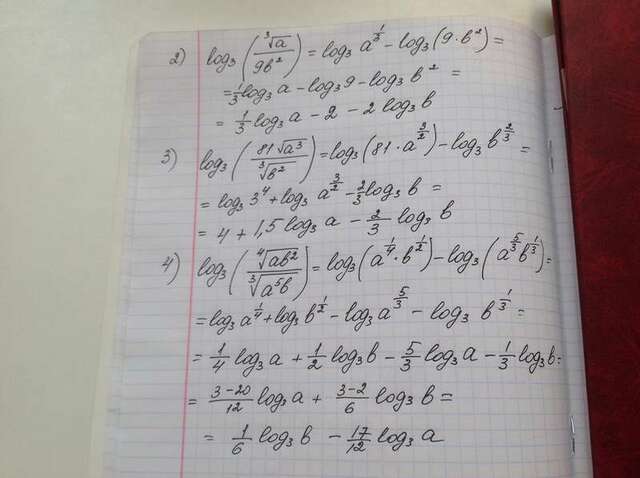 2) log₃(∛a / 9b²) = log₃ a^(1/3) − log₃(9·b²) =
= 1/3 log₃ a − log₃ 9 − log₃ b² =
= 1/3 log₃ a − 2 − 2 log₃ b
3) log₃(81√a³ / ∛b²) = log₃(81·a^(3/2)) − log₃ b^(2/3) =
= log₃ 3⁴ + log₃ a^(3/2) − 2/3 log₃ b =
= 4 + 1,5 log₃ a − 2/3 log₃ b
4) log₃(∜ab² / ∛a⁵b) = log₃(a^(1/4)·b^(1/2)) − log₃(a^(5/3) b^(1/3)) =
= log₃ a^(1/4) + log₃ b^(1/2) − log₃ a^(5/3) − log₃ b^(1/3) =
= 1/4 log₃ a + 1/2 log₃ b − 5/3 log₃ a − 1/3 log₃ b =
= (3−20)/12 log₃ a + (3−2)/6 log₃ b =
= 1/6 log₃ b − 17/12 log₃ a